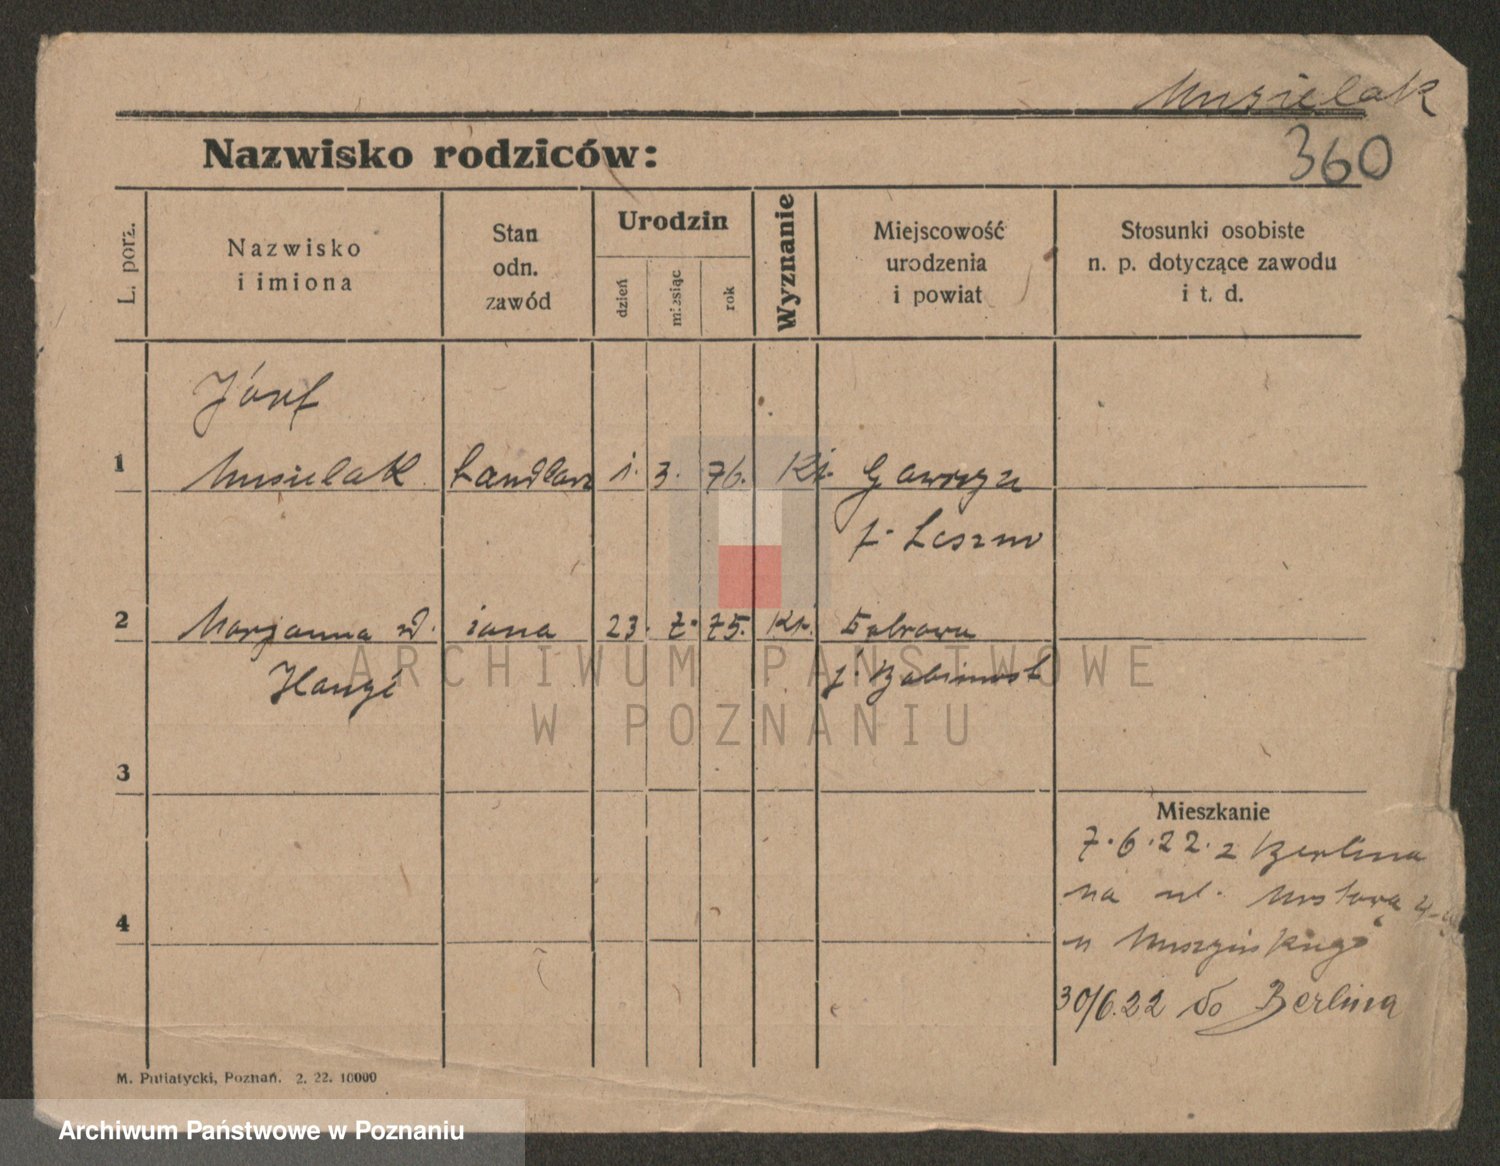 Musielak
360
Nazwisko rodziców:
L. porz.
Nazwisko
i imiona
Stan
odn.
zawód
Urodzin
dzień
miesiąc
rok
Wyznanie
Miejscowość
urodzenia
i powiat
Stosunki osobiste
n. p. dotyczące zawodu
i t. d.
Józef
1 Musielak handlarz 1. 3. 76. Kt.
p. Leszno
2 Marjanna żona 23. 7. 75. Kt.
p. Babimost
3
Mieszkanie
7.6.22. z Berlina
na ul. Mostową
u Muszyńskiego
4
30/6.22 do Berlina
M. Putiatycki, Poznań. 2. 22. 10000
ARCHIWUM PAŃSTWOWE
W POZNANIU
Archiwum Państwowe w Poznaniu